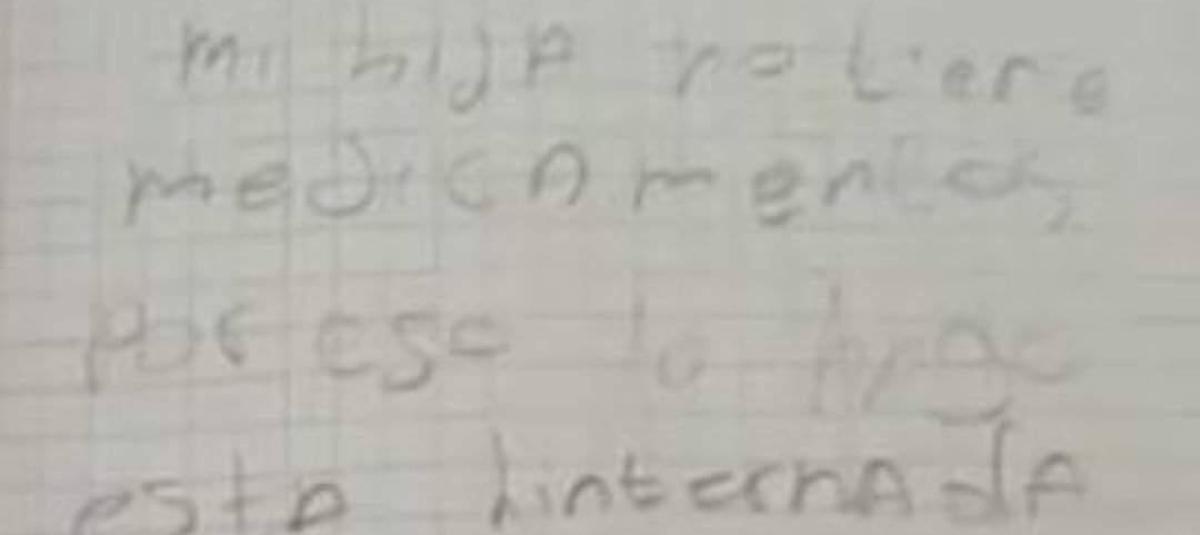 mi hijA notiene
medicAmentos
por eso lo hago
estA hinternAdA